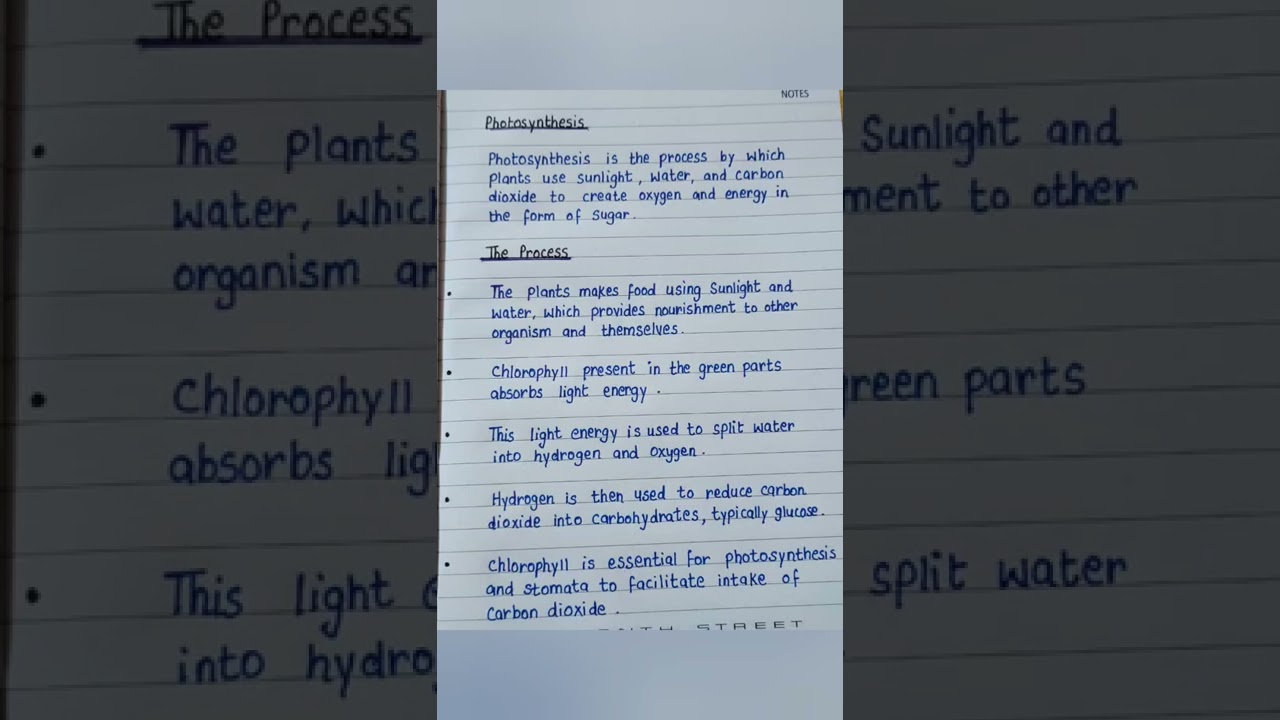 NOTES
Photosynthesis
Photosynthesis is the process by which
plants use sunlight, water, and carbon
dioxide to create oxygen and energy in
the form of sugar.
The Process
• The plants makes food using Sunlight and
water, which provides nourishment to other
organism and themselves.
• Chlorophyll present in the green parts
absorbs light energy.
• This light energy is used to split water
into hydrogen and oxygen.
• Hydrogen is then used to reduce carbon
dioxide into carbohydrates, typically glucose.
• Chlorophyll is essential for photosynthesis
and stomata to facilitate intake of
Carbon dioxide.
STREET
The Process
• The plants
water, which
organism
• Chlorophyll
absorbs
• This light
into
Sunlight and
to other
green parts
split water